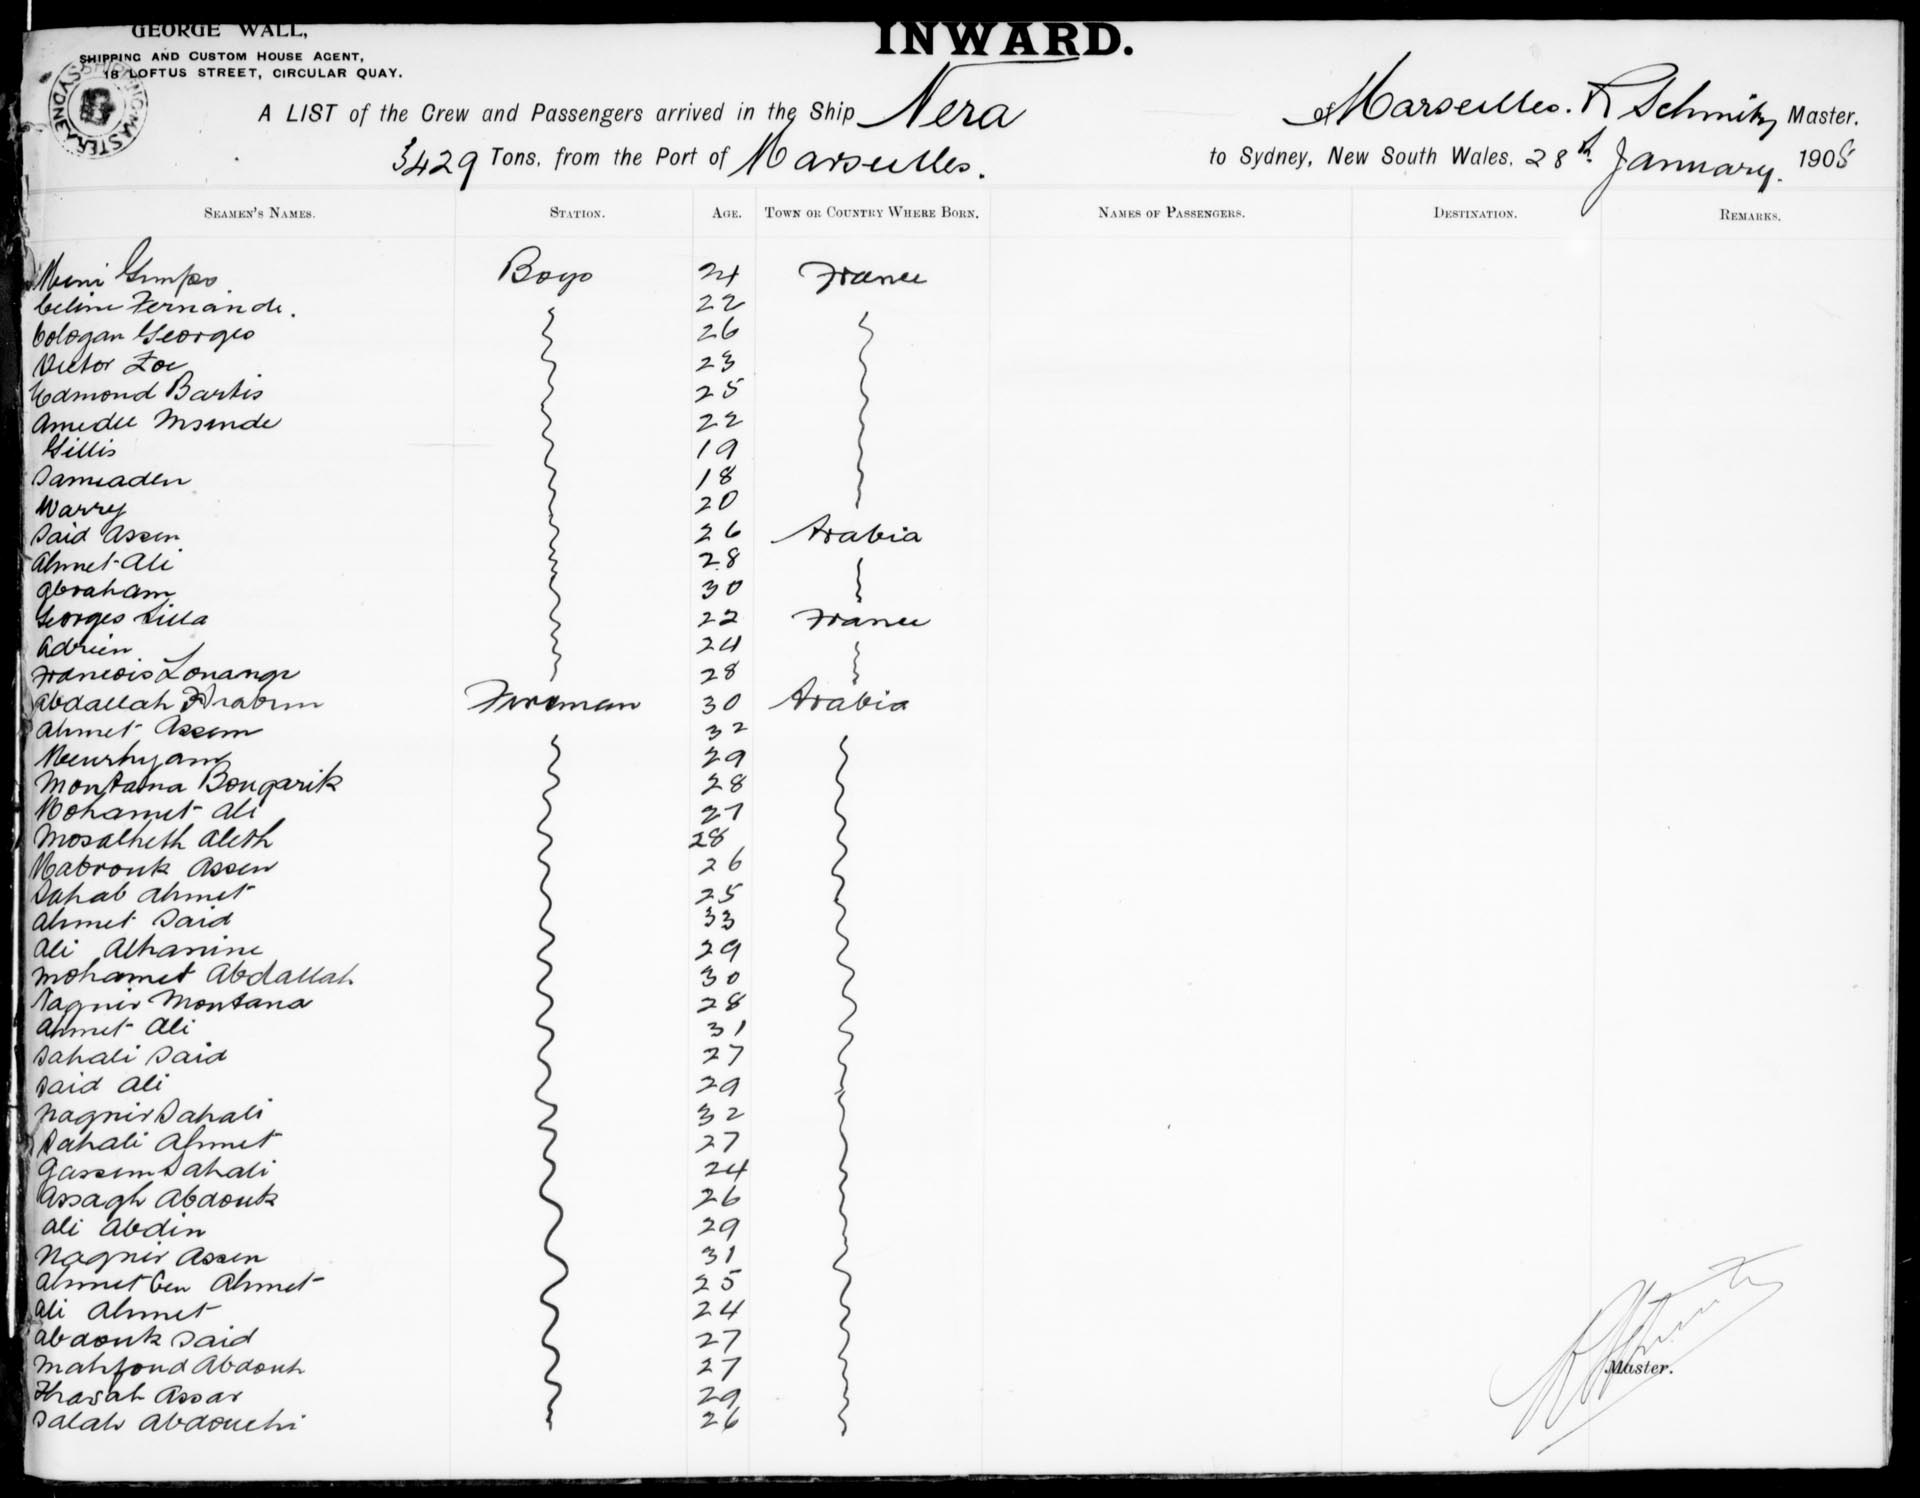 GEORGE WALL,
SHIPPING AND CUSTOM HOUSE AGENT,
18 LOFTUS STREET, CIRCULAR QUAY.
SHIPPING MASTER SYDNEY
INWARD.
A LIST of the Crew and Passengers arrived in the Ship Nera of Marseilles. R Schmitz Master.
3429 Tons, from the Port of Marseilles. to Sydney, New South Wales, 28th January. 1908
SEAMEN'S NAMES. STATION. AGE. TOWN OR COUNTRY WHERE BORN. NAMES OF PASSENGERS. DESTINATION. REMARKS.
Boys 24 France
Celine Fernande. 22
Cologan Georges 26
Victor Zoe 23
Edmond Bartis 25
Amedee 22
Gillis 19
Samiaden 18
Warry 20
Said Assen 26 Arabia
Ahmet Ali 28
Abraham 30
Georges Lilla 22 France
Adrien 24
Francois Lonange 28
Abdallah Fireman 30 Arabia
Ahmet Assem 32
29
Montana Bougarik 28
Mohamet Ali 27
Mosalheth Aleth 28
Mabrouk Assen 26
Sahab Ahmet 25
Ahmet Said 33
Ali Althanine 29
Mohamet Abdallah 30
Nagnir Montana 28
Ahmet Ali 31
Sahali Said 27
Said Ali 29
Nagnir Sahali 32
Sahali Ahmet 27
Gassem Sahali 24
Assagh Abdouk 26
Ali Abdin 29
Nagnir Assen 31
Ahmet Ben Ahmet 25
Ali Ahmet 24
Abdouk Said 27
Mahfoud Abdouh 27
Assar 29
Salah Abdouchi 26
R Schmitz
Master.